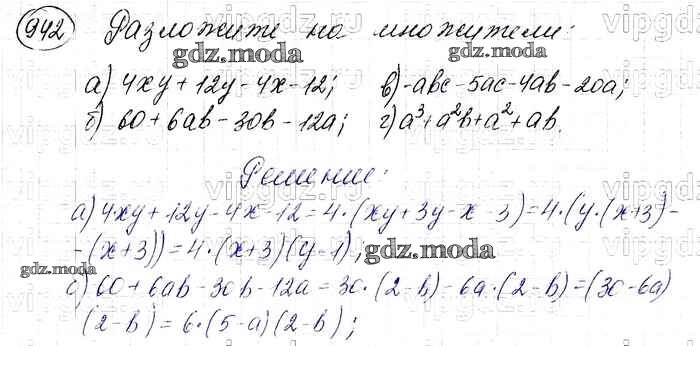 942 Разложите на множители:
а) 4xy + 12y - 4x - 12; в) -abc - 5ac - 4ab - 20a;
б) 60 + 6ab - 30b - 12a; г) a³ + a²b + a² + ab.
Решение:
а) 4xy + 12y - 4x - 12 = 4·(xy + 3y - x - 3) = 4·(y·(x+3) -
- (x+3)) = 4·(x+3)(y-1);
б) 60 + 6ab - 30b - 12a = 30·(2-b) - 6a·(2-b) = (30-6a)
(2-b) = 6·(5-a)(2-b);
gdz.moda
gdz.moda
gdz.moda
gdz.moda
gdz.moda
vipgdz.ru
vipgdz.ru